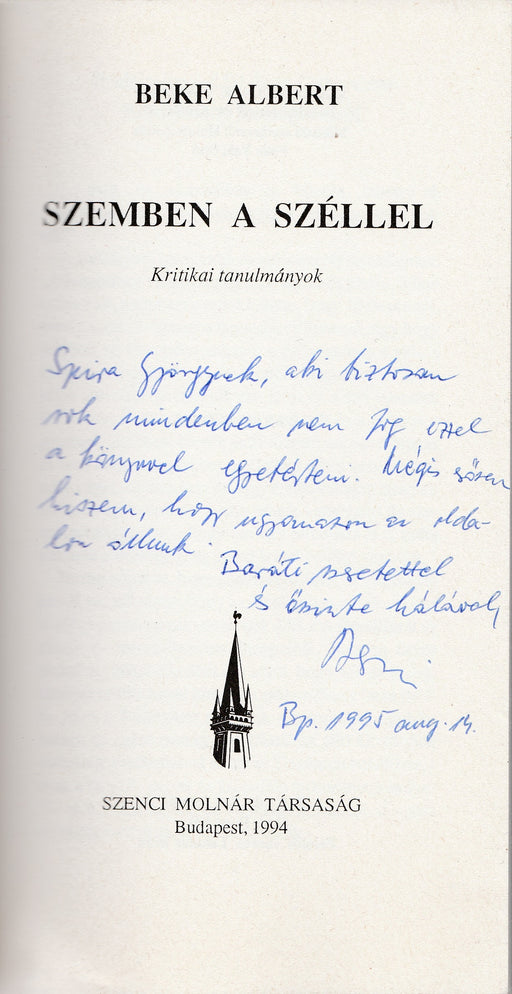 BEKE ALBERT
SZEMBEN A SZÉLLEL
Kritikai tanulmányok
Spira Györgynek, aki biztosan
sok mindenben nem fog ezzel
a könyvvel egyetérteni. Mégis
hiszem, hogy ugyanazon az olda-
lon állunk.
Baráti szeretettel
és őszinte hálával,
Bp. 1995 aug. 14.
SZENCI MOLNÁR TÁRSASÁG
Budapest, 1994